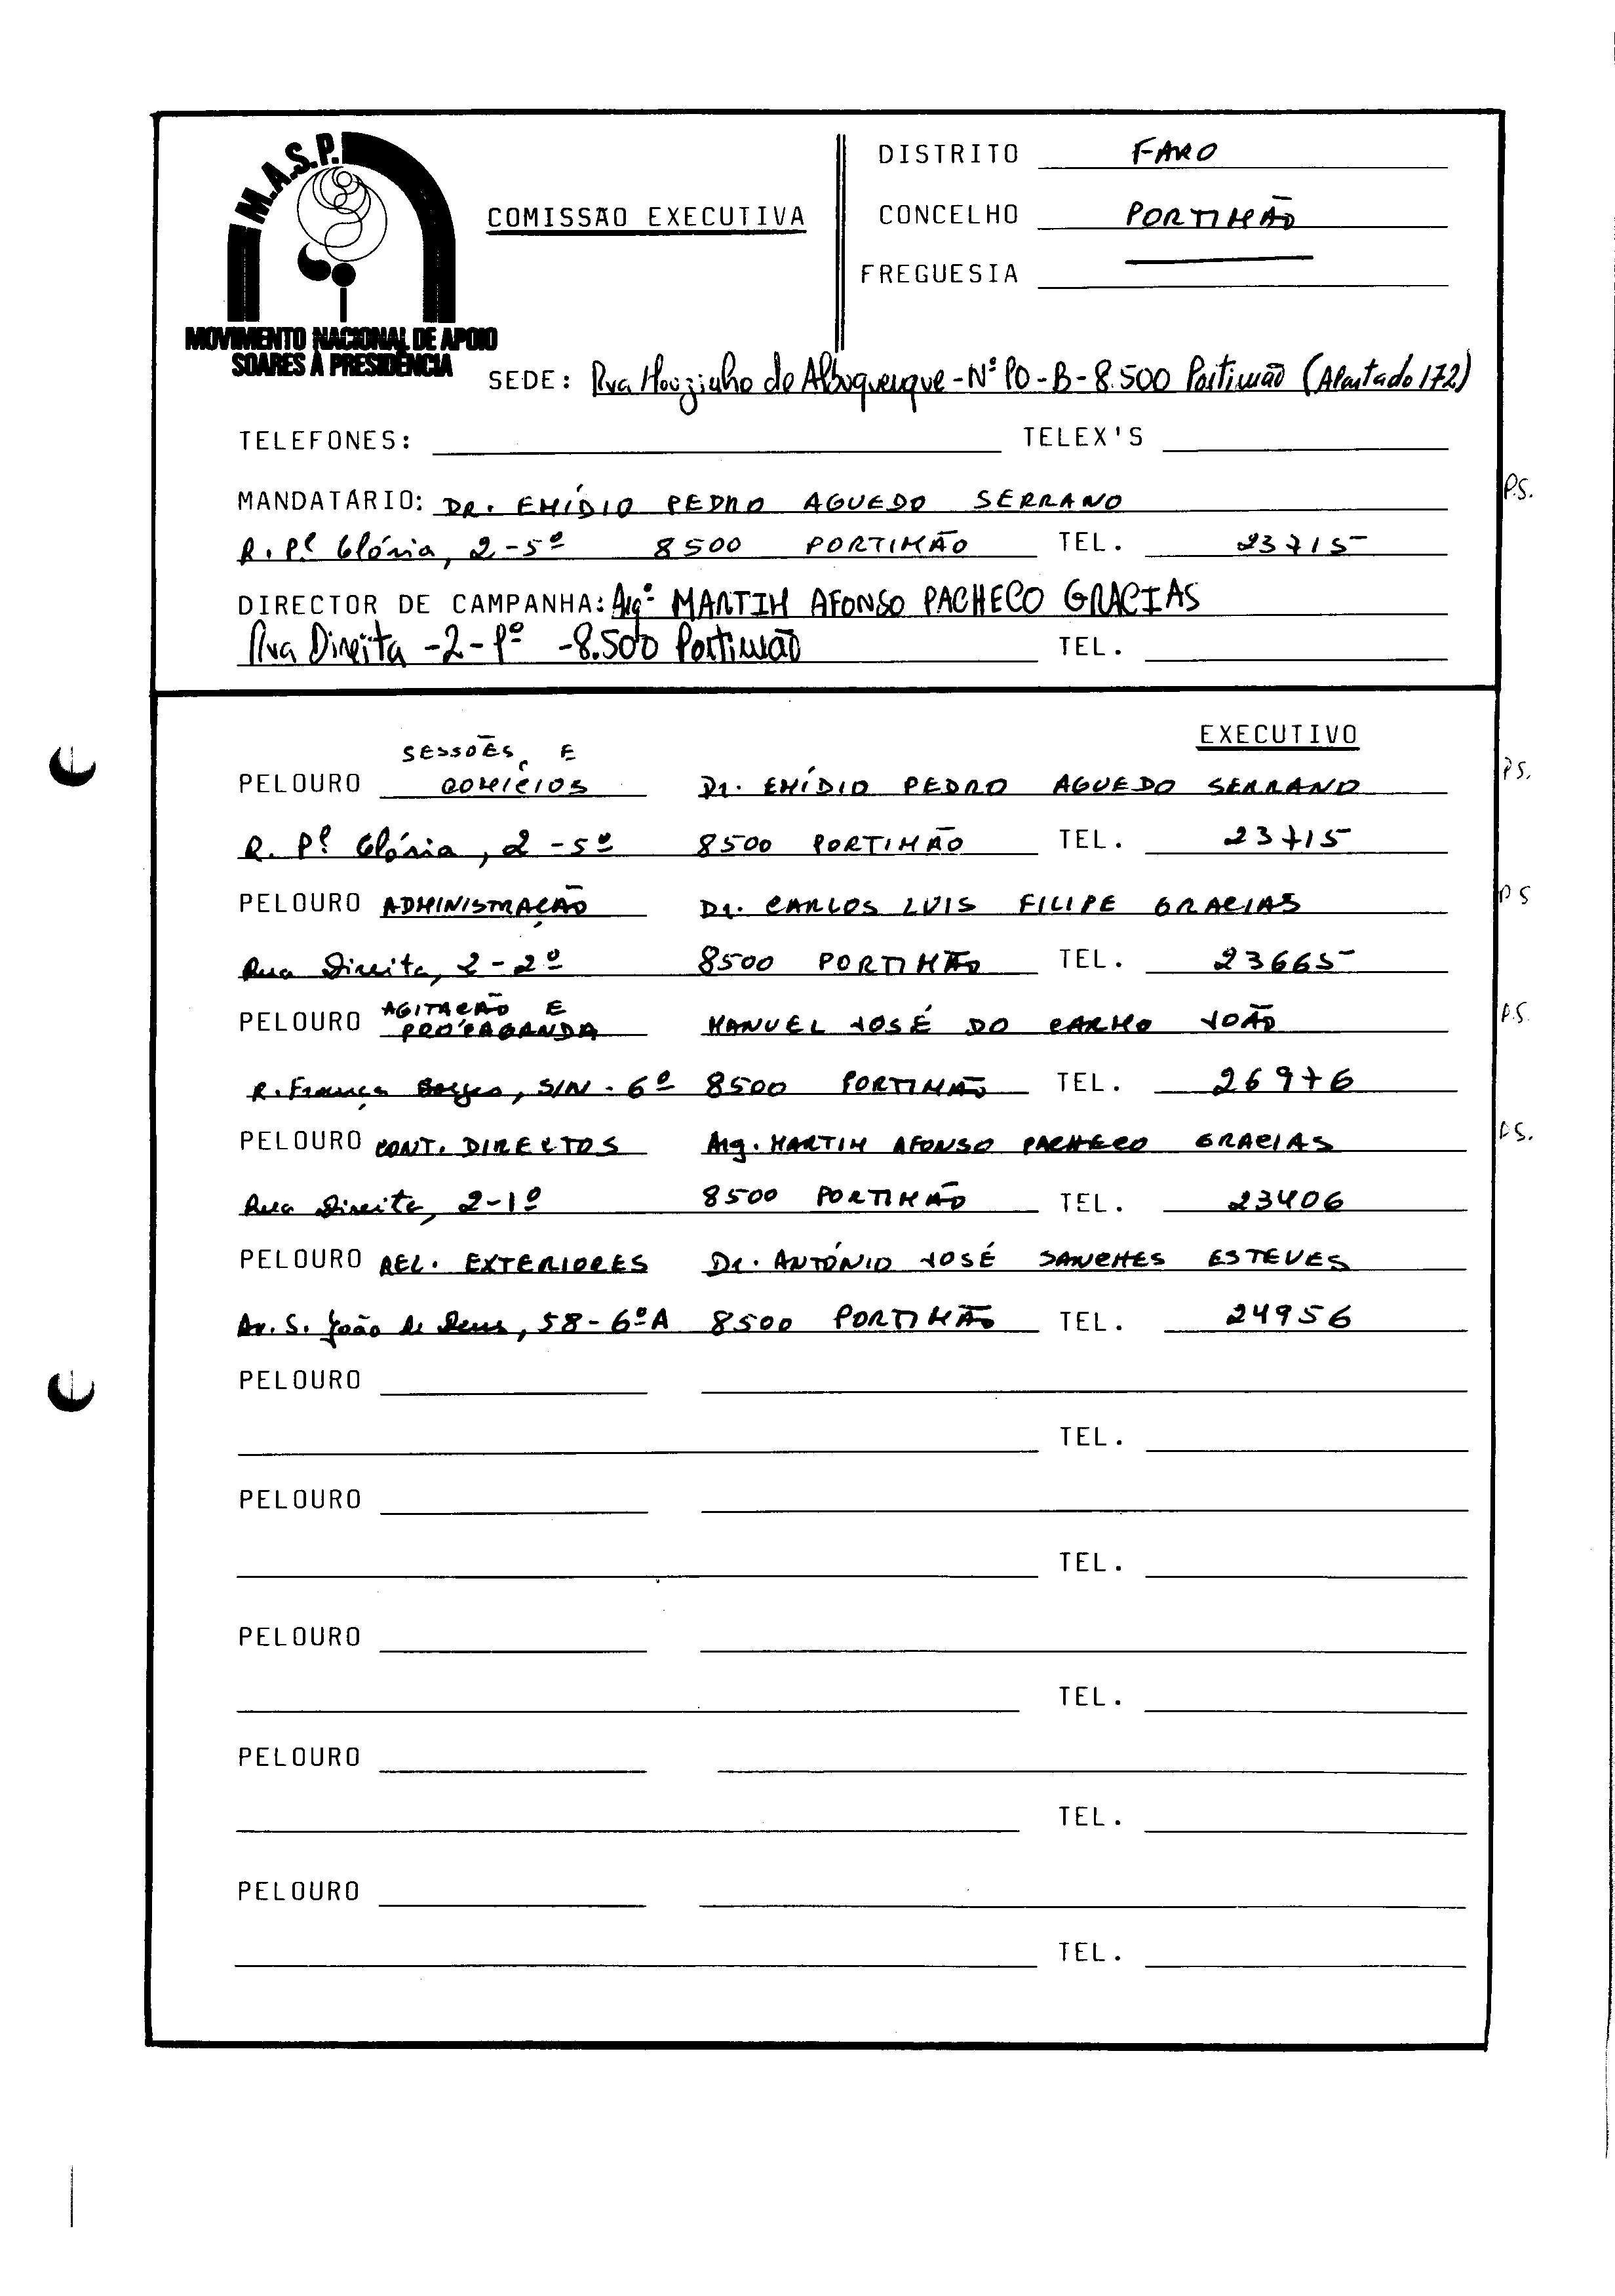 M.A.S.P.
MOVIMENTO NACIONAL DE APOIO
SOARES À PRESIDÊNCIA
COMISSÃO EXECUTIVA
DISTRITO FARO
CONCELHO PORTIMÃO
FREGUESIA
SEDE: Rua Mouzinho de Albuquerque - Nº 10 - B - 8.500 Portimão (Apartado 172)
TELEFONES: TELEX'S
MANDATÁRIO: DR. EMÍDIO PEDRO AGUEDO SERRANO P.S.
R. Pª Glória, 2 - 5º 8500 PORTIMÃO TEL. 23715
DIRECTOR DE CAMPANHA: Arqº MARTIM AFONSO PACHECO GRACIAS
Rua Direita - 2 - 1º - 8.500 Portimão TEL.
EXECUTIVO
PELOURO SESSÕES E COMÍCIOS Dr. EMÍDIO PEDRO AGUEDO SERRANO P.S.
R. Pª Glória, 2 - 5º 8500 PORTIMÃO TEL. 23715
PELOURO ADMINISTRAÇÃO Dr. CARLOS LUIS FILIPE GRACIAS P S
Rua Direita, 2 - 2º 8500 PORTIMÃO TEL. 23665
PELOURO AGITAÇÃO E PROPAGANDA MANUEL JOSÉ DO CARMO JOÃO P.S.
R. França Borges, S/N - 6º 8500 PORTIMÃO TEL. 26976
PELOURO CONT. DIRECTOS Arq. MARTIM AFONSO PACHECO GRACIAS P.S.
Rua Direita, 2-1º 8500 PORTIMÃO TEL. 23406
PELOURO REL. EXTERIORES Dr. ANTÓNIO JOSÉ SANCHES ESTEVES
Av. S. João de Deus, 58 - 6º A 8500 PORTIMÃO TEL. 24956
PELOURO
TEL.
PELOURO
TEL.
PELOURO
TEL.
PELOURO
TEL.
PELOURO
TEL.